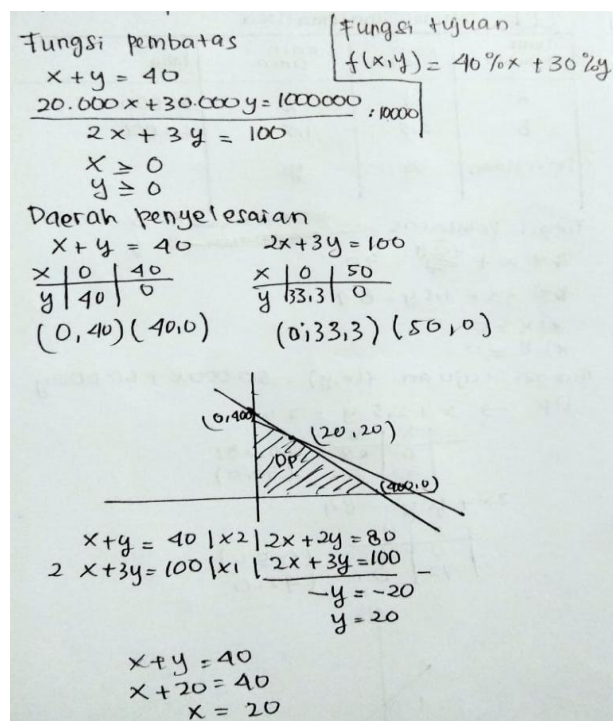 Fungsi pembatas
x + y = 40
20.000 x + 30.000 y = 1000000 : 10000
2x + 3y = 100
x ≥ 0
y ≥ 0
Fungsi tujuan
f(x,y) = 40%x + 30%y
Daerah penyelesaian
x + y = 40
x | 0 | 40
y | 40 | 0
(0,40)(40,0)
2x+3y=100
x | 0 | 50
y | 33,3 | 0
(0,33,3) (50,0)
(0,400
(20,20)
DP
(400,0)
x+y = 40 |x2| 2x+2y = 80
2 x+3y=100 |x1| 2x + 3y =100 -
-y = -20
y = 20
x+y = 40
x + 20 = 40
x = 20